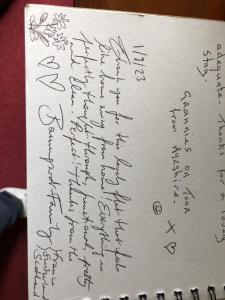 adequate. Thanks for a lovely
stay.
Grannies on Tour
from Ayrshire. X
1/9/23
Thank you for this lovely flat that feels
like home away from home! Everything is
perfectly thought through, neat and pretty
and clean. Perfect! Thanks from the
Family
France
Scotland